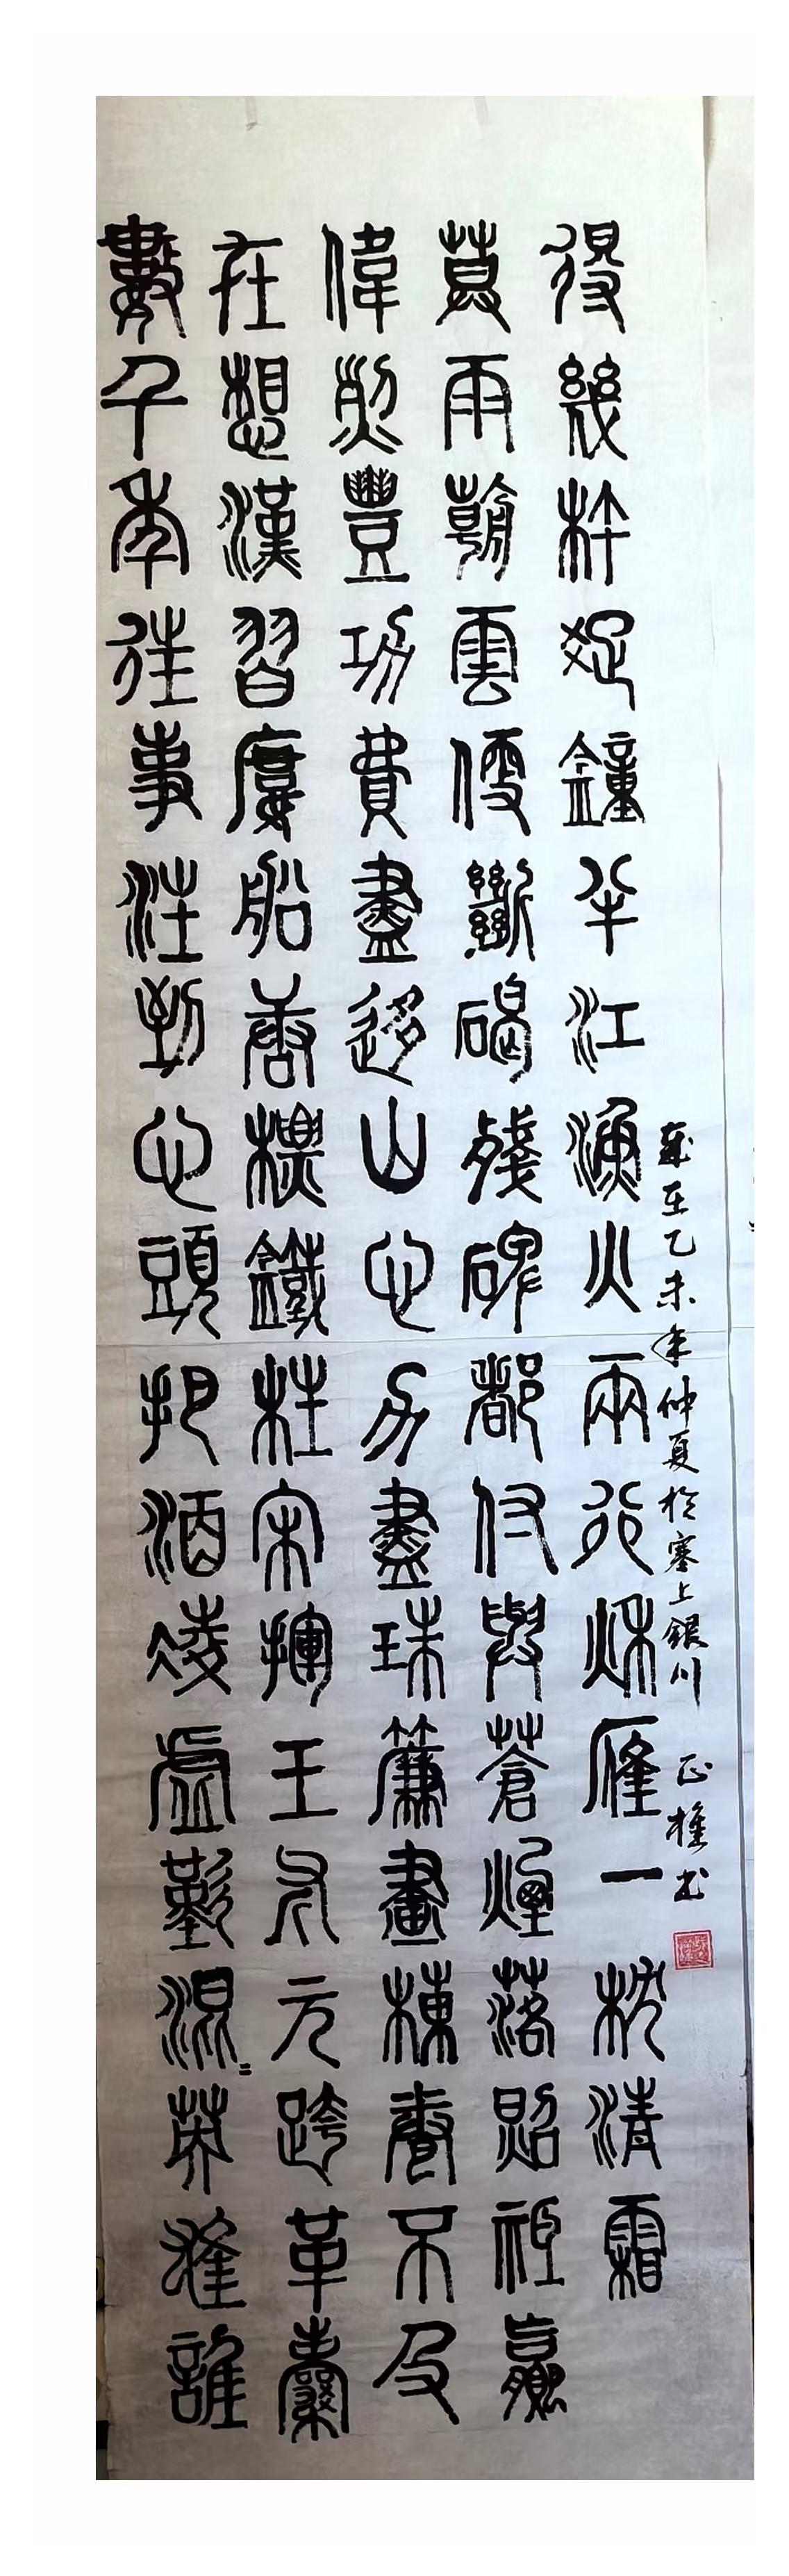 數千年往事注到心頭把酒凌虛歎滾滾英雄誰
在想漢習樓船唐標鐵柱宋揮玉斧元跨革囊
偉烈豐功費盡移山心力盡珠簾畫棟卷不及
暮雨朝雲便斷碣殘碑都付與蒼煙落照祇贏
得幾杵疏鐘半江漁火兩行秋雁一枕清霜
歲在乙未年仲夏於塞上銀川 正權書